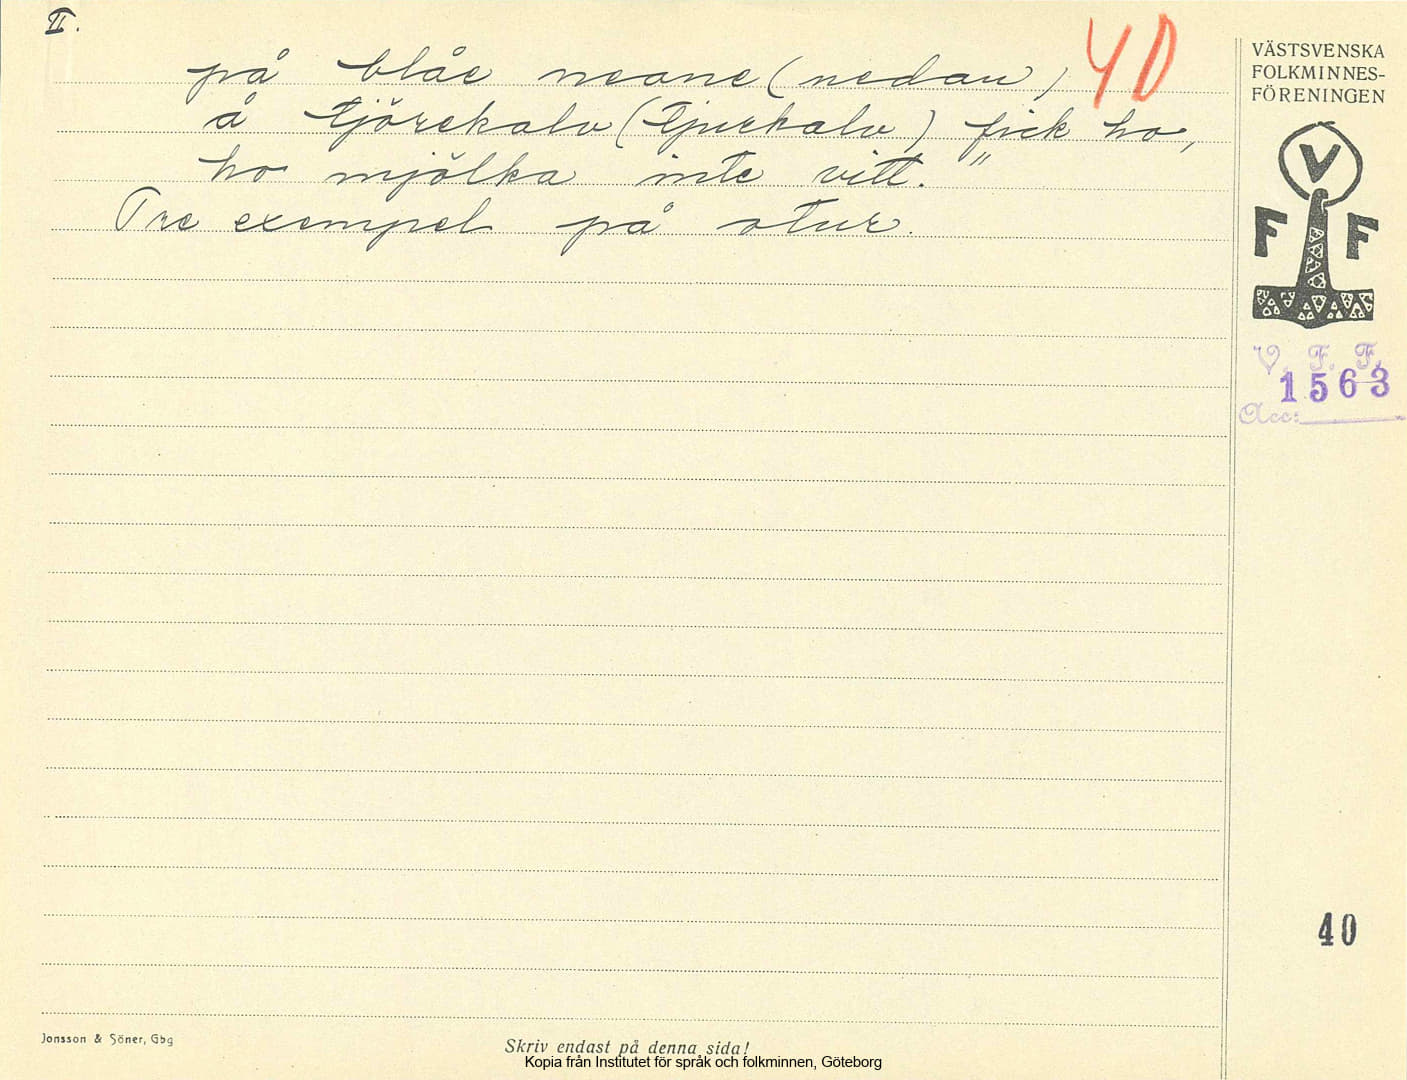 II.
40
på blåe neane (nedan)
å tjörekalv (tjurkalv) fick ho,
ho mjölka inte vitt."
Tre exempel på otur.
VÄSTSVENSKA
FOLKMINNES-
FÖRENINGEN
V
F F
V. F. F.
1563
Acc:
40
Jonsson & Söner, Gbg
Skriv endast på denna sida!
Kopia från Institutet för språk och folkminnen, Göteborg